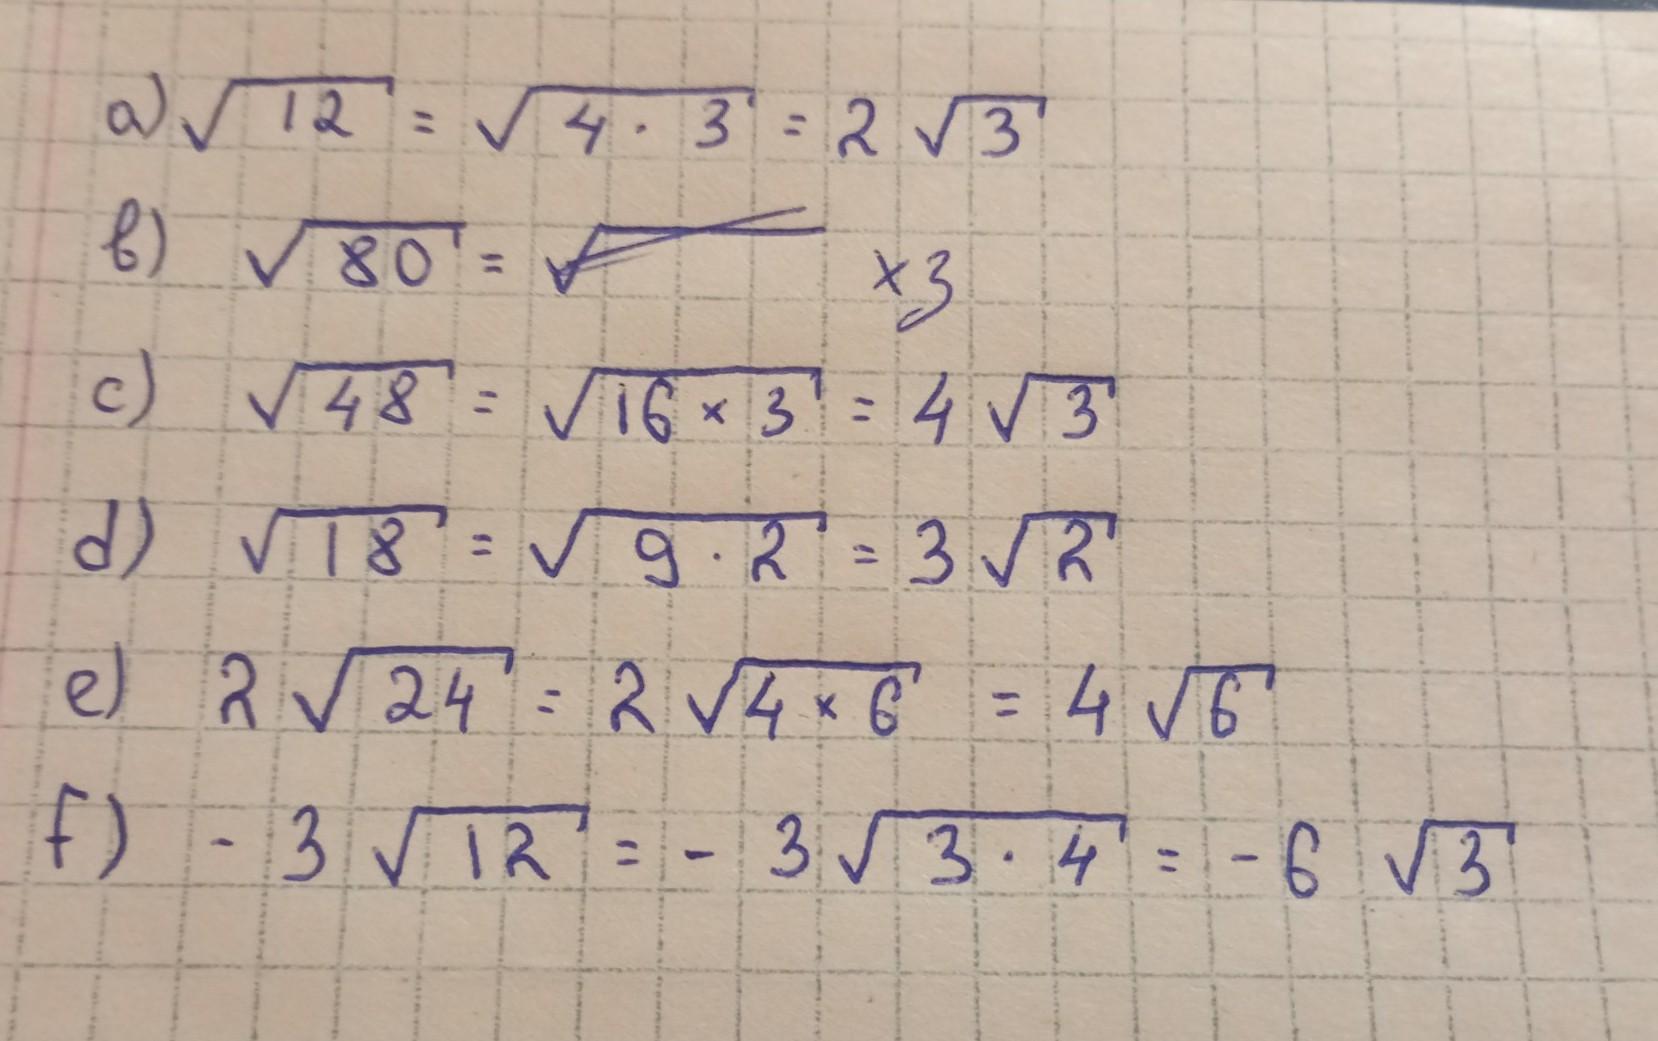 a) √12 = √4 · 3 = 2 √3
b) √80 = √ x 3
c) √48 = √16 x 3 = 4 √3
d) √18 = √9 · 2 = 3 √2
e) 2 √24 = 2 √4 x 6 = 4 √6
f) - 3 √12 = - 3 √3 · 4 = - 6 √3